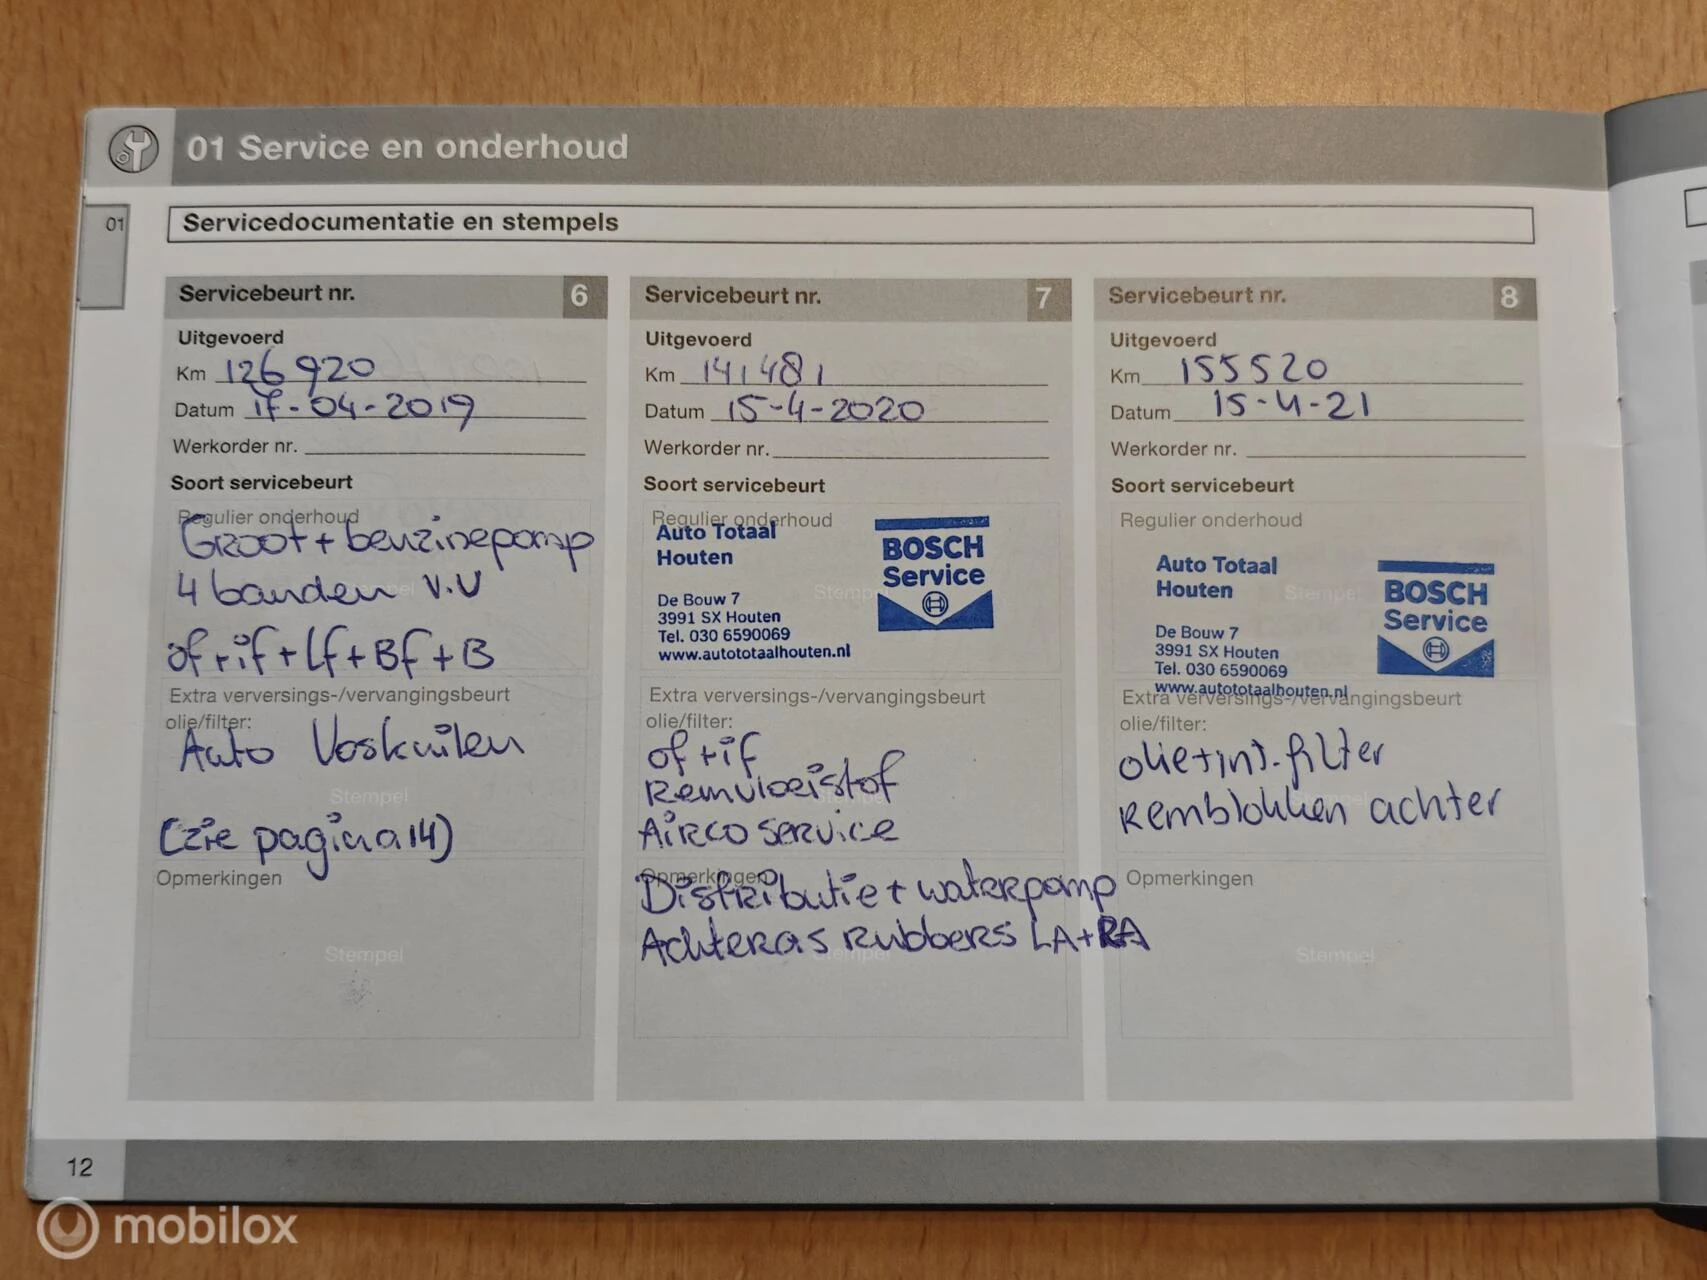 01 Service en onderhoud
01
Servicedocumentatie en stempels
Servicebeurt nr. 6
Uitgevoerd
Km 126920
Datum 17-04-2019
Werkorder nr.
Soort servicebeurt
Regulier onderhoud
Groot + benzinepomp
4 banden V.V
Stempel
of + if + Lf + Bf + B
Extra verversings-/vervangingsbeurt
olie/filter:
Auto Voskuilen
Stempel
(zie pagina 14)
Opmerkingen
Stempel
Servicebeurt nr. 7
Uitgevoerd
Km 141481
Datum 15-4-2020
Werkorder nr.
Soort servicebeurt
Regulier onderhoud
Auto Totaal
Houten
BOSCH
Service
Stempel
De Bouw 7
3991 SX Houten
Tel. 030 6590069
www.autototaalhouten.nl
Extra verversings-/vervangingsbeurt
olie/filter:
of + if
Remvloeistof
Stempel
Airco service
Opmerkingen
Distributie + waterpomp
Achteras rubbers LA+RA
Stempel
Servicebeurt nr. 8
Uitgevoerd
Km 155520
Datum 15-4-21
Werkorder nr.
Soort servicebeurt
Regulier onderhoud
Auto Totaal
Houten
BOSCH
Service
Stempel
De Bouw 7
3991 SX Houten
Tel. 030 6590069
www.autototaalhouten.nl
Extra verversings-/vervangingsbeurt
olie/filter:
olie+int.filter
Remblokken achter
Stempel
Opmerkingen
Stempel
12
mobilox